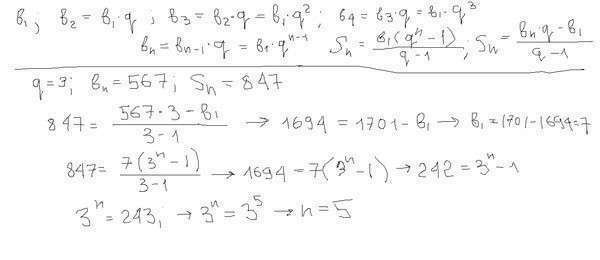 в₁; в₂ = в₁·q; в₃ = в₂·q = в₁·q²; в₄ = в₃·q = в₁·q³
вₙ = вₙ₋₁·q = в₁·qⁿ⁻¹ Sₙ = в₁(qⁿ-1)/(q-1); Sₙ = (вₙ·q-в₁)/(q-1)
q = 3; вₙ = 567; Sₙ = 847
847 = (567·3-в₁)/(3-1) → 1694 = 1701-в₁ → в₁ = 1701-1694 = 7
847 = 7(3ⁿ-1)/(3-1) → 1694 = 7(3ⁿ-1) → 242 = 3ⁿ-1
3ⁿ = 243; → 3ⁿ = 3⁵ → n = 5